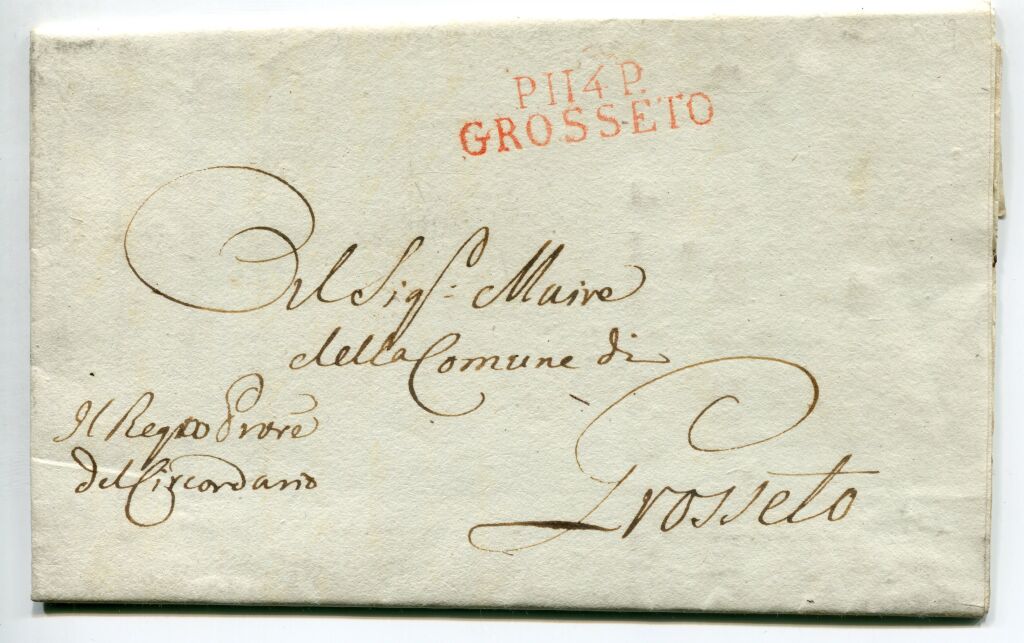 P114P.
GROSSETO
Al Sigr: Maire
della Comune di
Grosseto
Il Regio Prore
del Circondario